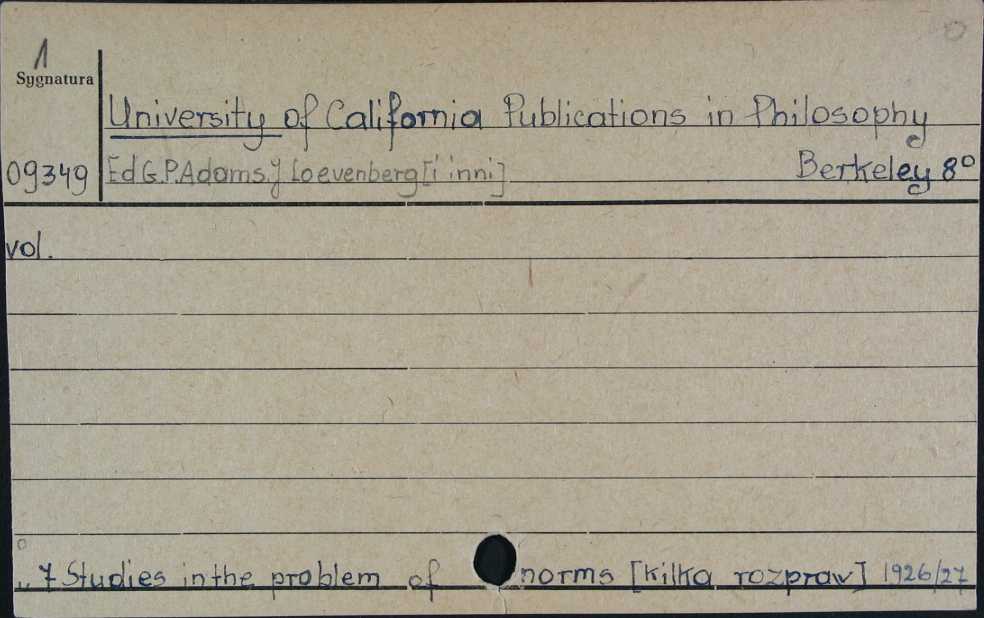 1
Sygnatura
University of California Publications in Philosophy
09349 Ed G.P. Adams. J Loevenberg [i inni] Berkeley 8º
vol.
„ 7 Studies in the problem of norms [kilka rozpraw] 1926/27